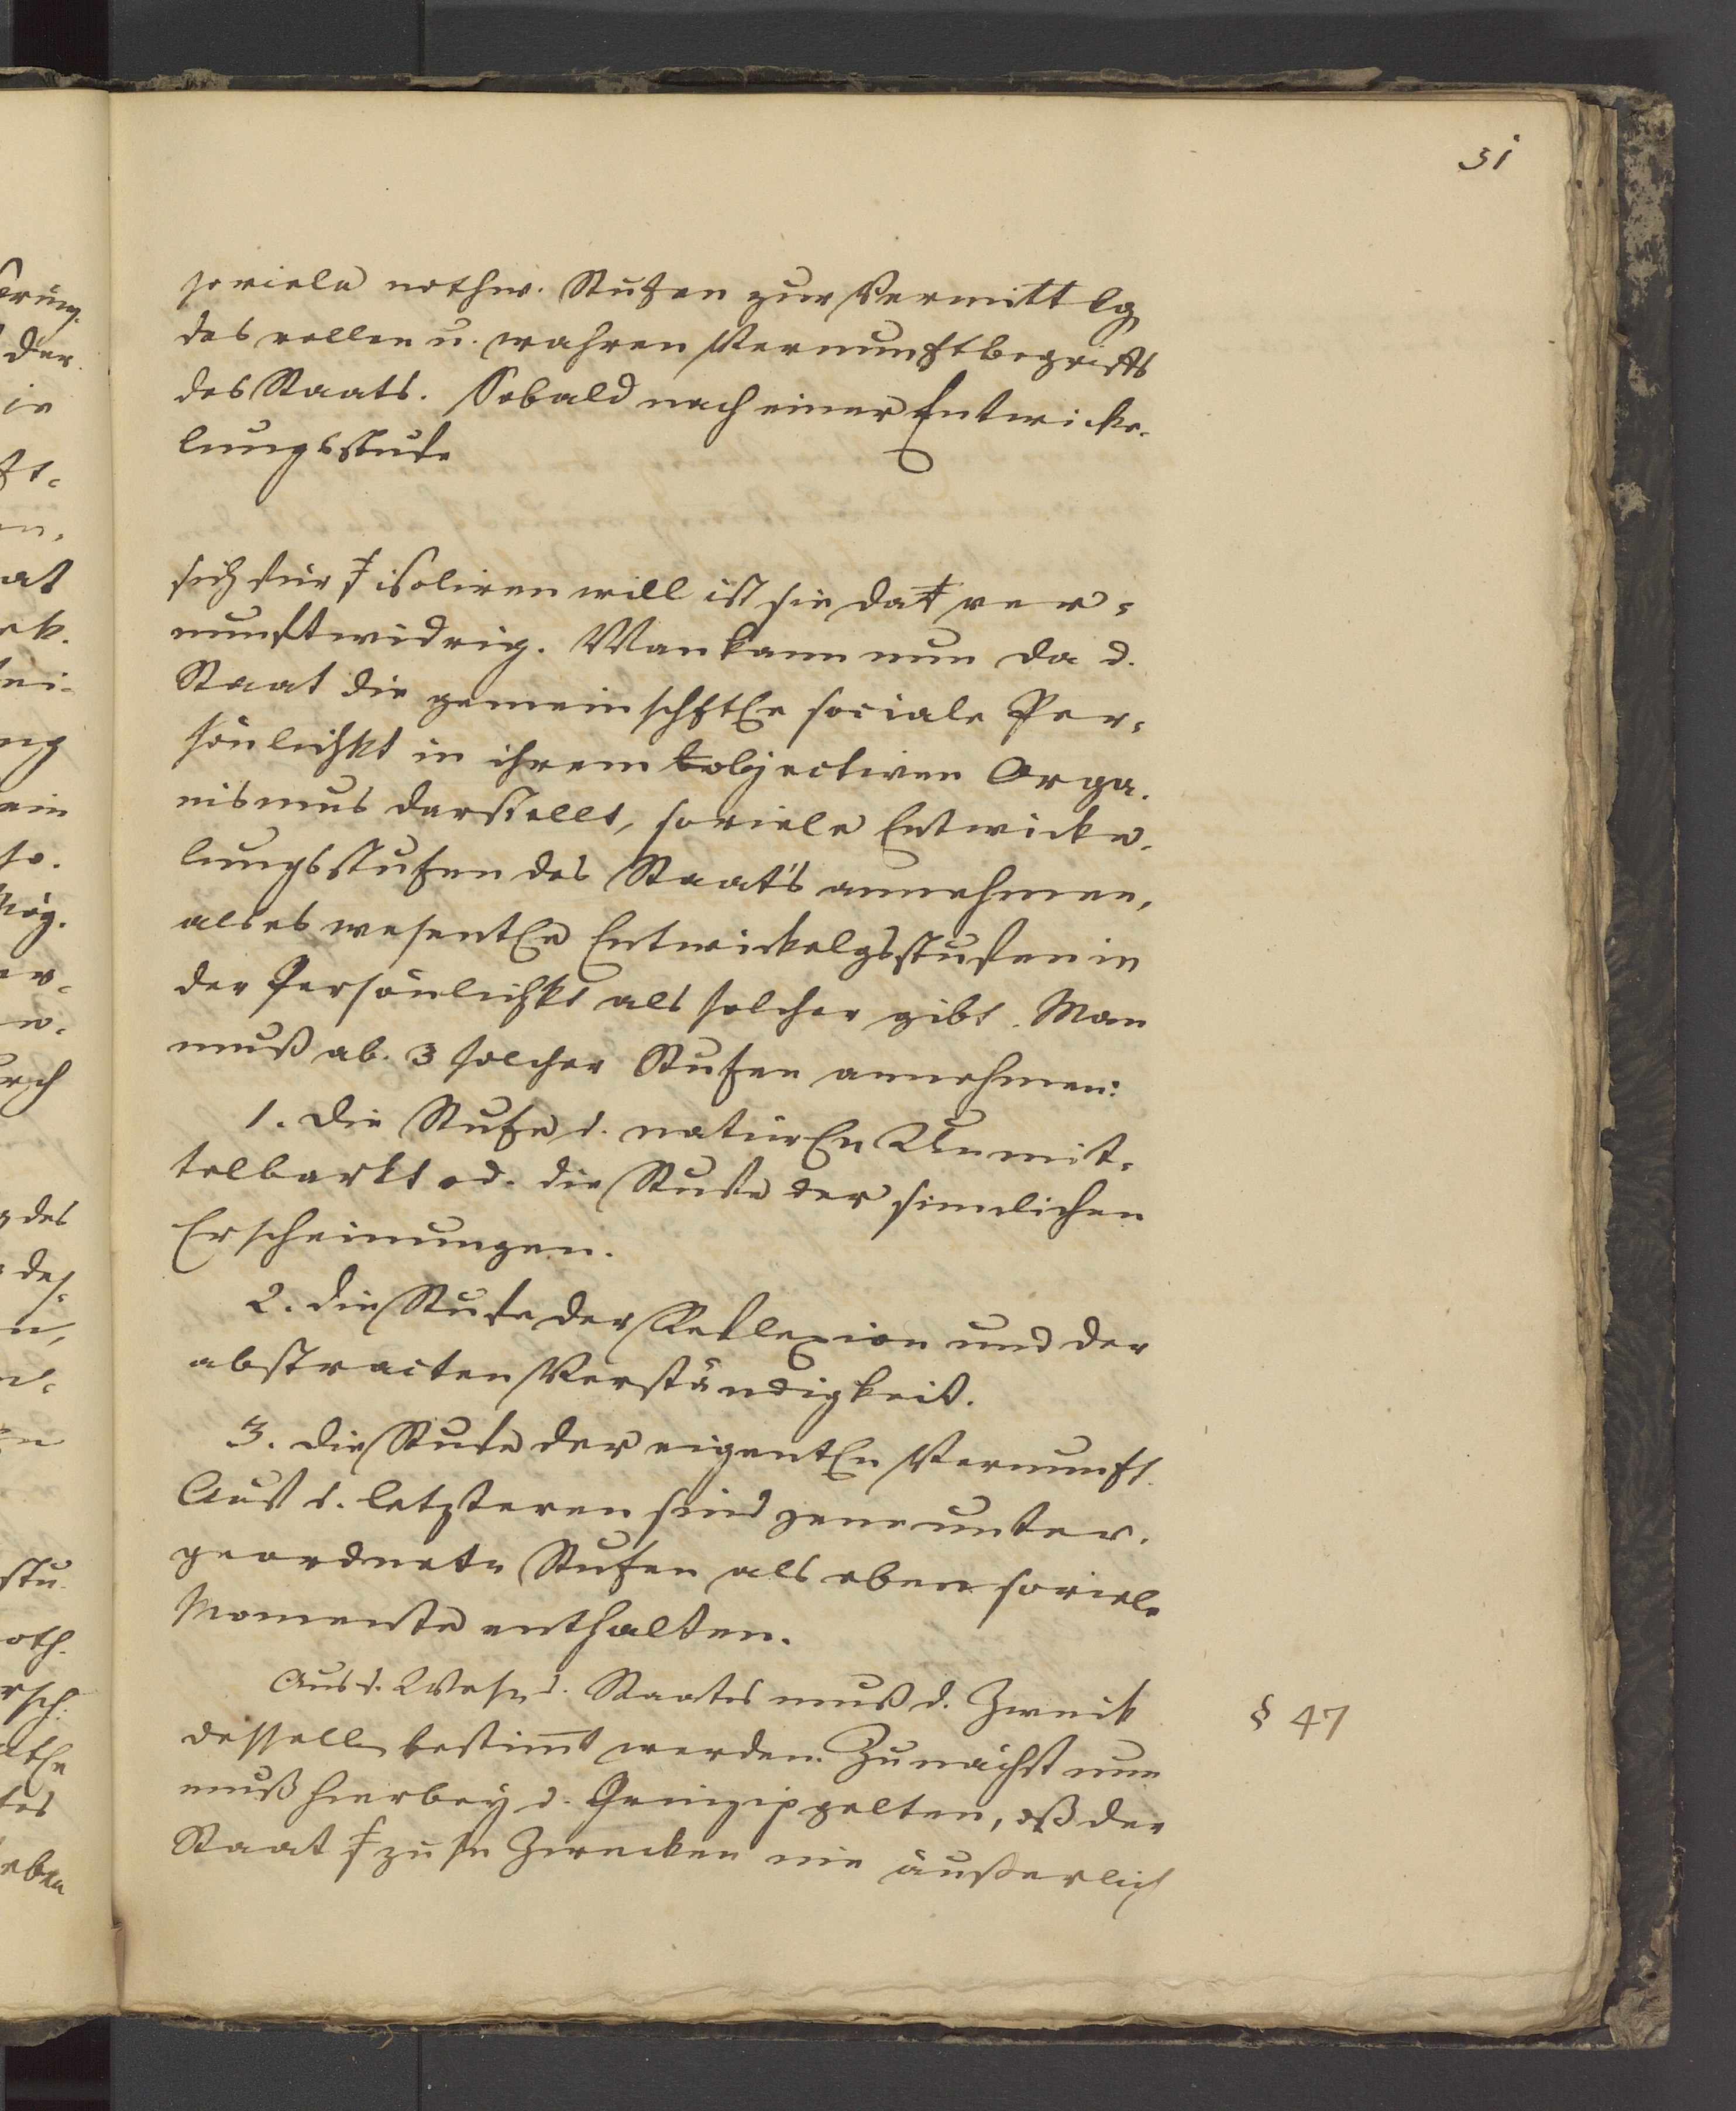 31
soviele nothw. Stufen zur Vermittlg
des vollen u. wahren Vernunftbegriffs
des Staats. Sobald nach einer Entwicke-
lungsstufe
sich für s. isoliren will ist sie dat ver-
nunftwidrig. Man kann nun da d.
Staat die gemeinschftle sociale Per-
sönlichkt in ihrem objectiven Orga-
nismus darstellt, soviele Entwicke-
lungsstufen des Staats annehmen,
als es wesentle Entwickelgsstufen in
der Persönlichkt als solcher gibt. Man
muß ab. 3 solcher Stufen annehmen:
1. die Stufe d. natürln Unmit-
telbarkt od. die Stufe der sinnlichen
Erscheinungen.
2. die Stufe der Reflexion und der
abstracten Verständigkeit.
3. die Stufe der eigentln Vernunft.
Aus d. letzteren sind jene unter-
geordnete Stufen als eben soviele
Momente enthalten.
Aus d. Wesn d. Staates muß d. Zweck
desselbn bestimt werden. Zunächst nun
muß hierbey d. Prinzip gelten, dß der
Staat s. zu sn Zwecken nie äußerlich
§ 47